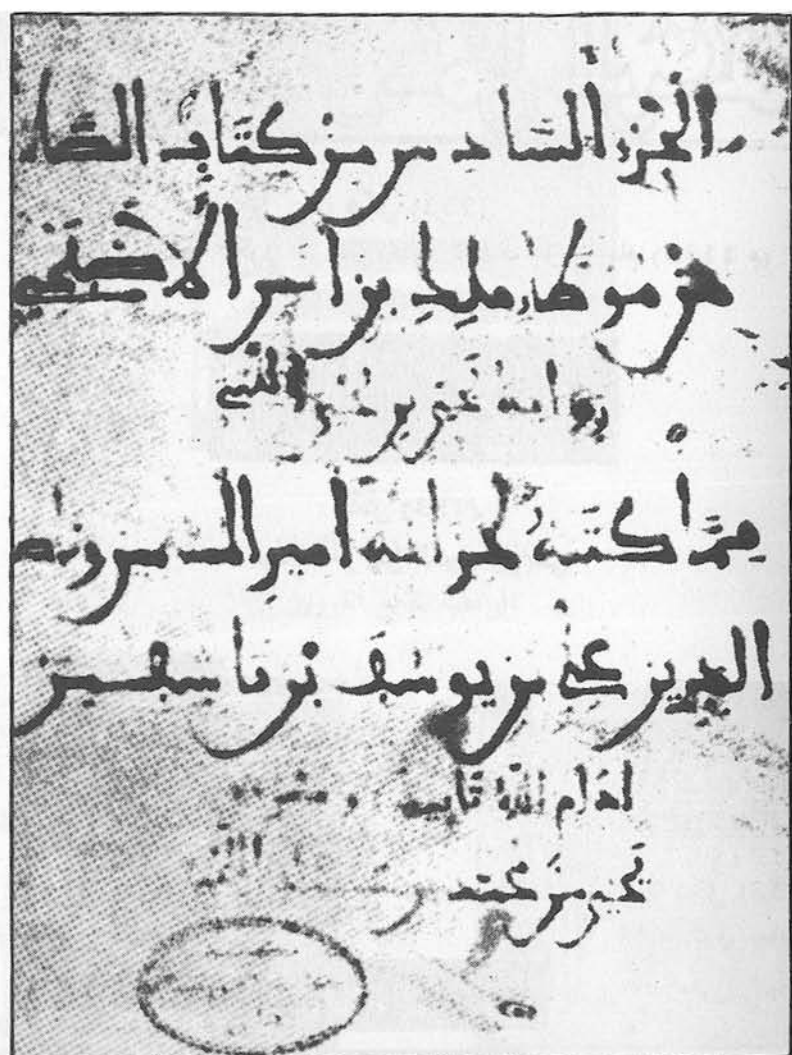 الجزء السادس من كتاب الصلاة
من موطإ ملك بن أنس الأصبحي
رواية يحيى بن يحيى الليثي
مما كتبه لخزانة أمير المسلمين وناصر
الدين علي بن يوسف بن تاشفين
أدام الله تأييده ونصره
يحيى بن محمد بن عبد الله